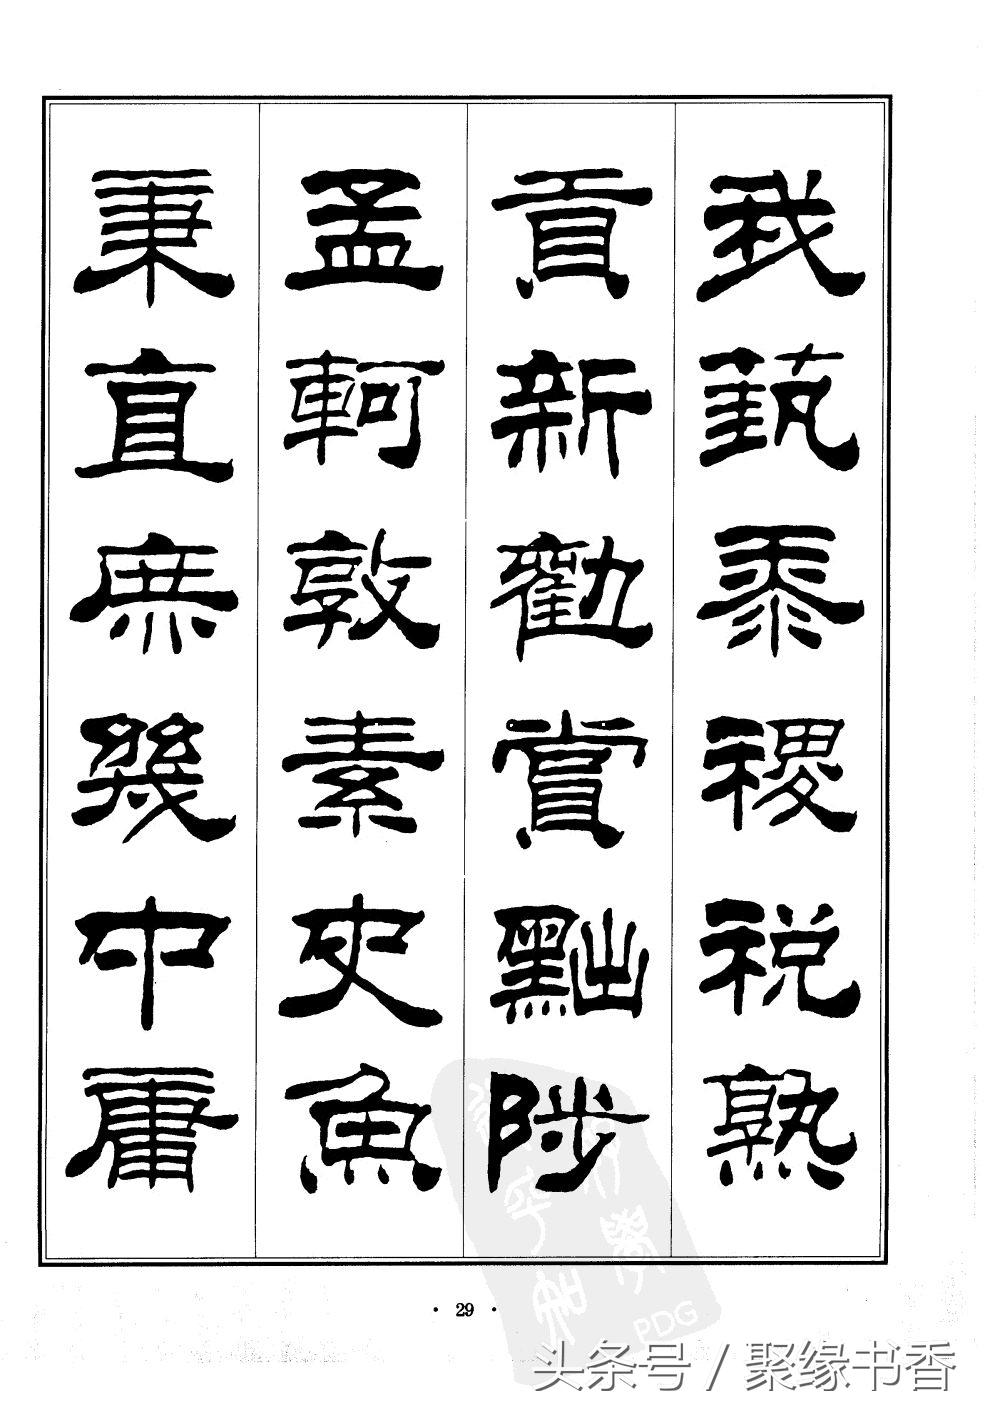 我藝黍稷稅熟
貢新勸賞黜陟
孟軻敦素史魚
秉直庶幾中庸
· 29 ·
PDG
头条号 / 聚缘书香